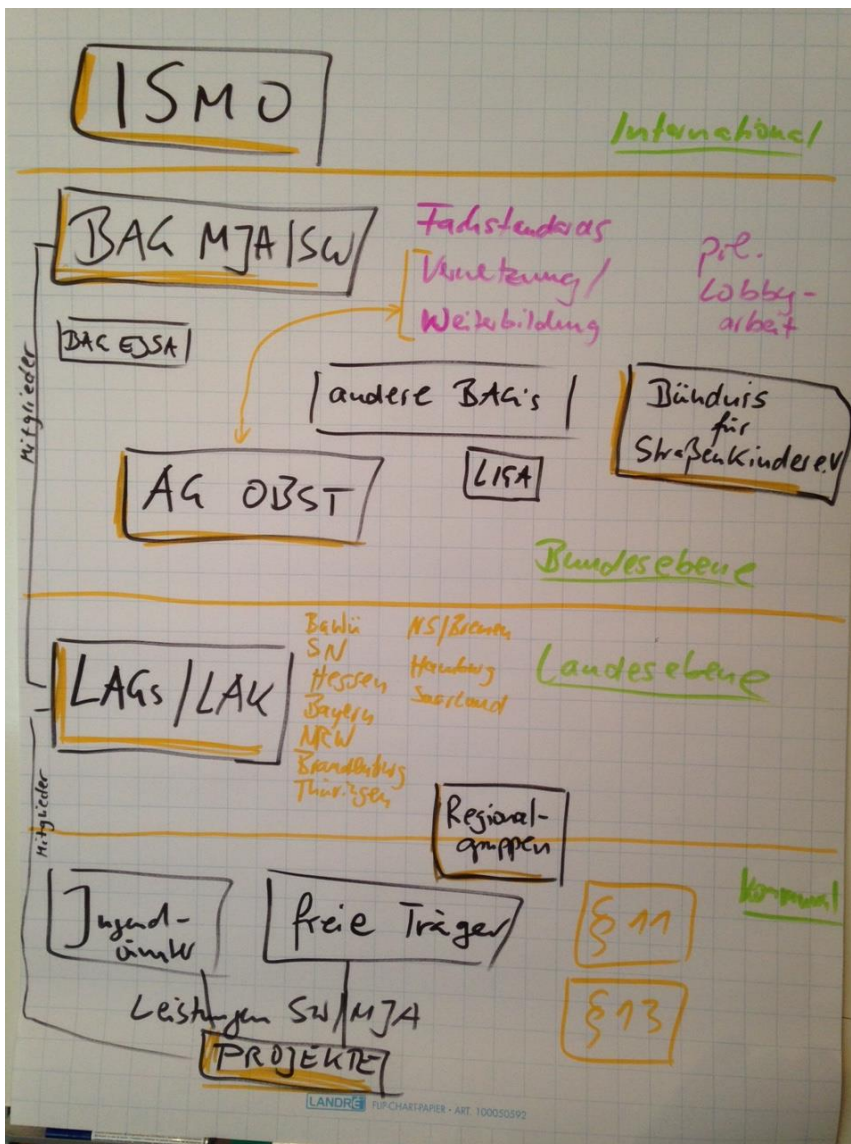 ISMO
International
BAG MJA/SW
Fachstandards
Vernetzung/
Weiterbildung
pol.
Lobby-
arbeit
BAG EJSA
Mitglieder
andere BAG's
Bündnis
für
Straßenkinder e.V
LIGA
AG OBST
Bundesebene
LAGs/LAK
BaWü
SN
Hessen
Bayern
NRW
Brandenburg
Thüringen
NS/Bremen
Hamburg
Saarland
Landesebene
Mitglieder
Regional-
gruppen
Kommunal
Jugend-
ämter
freie Träger
§ 11
§ 13
Leistungen SW/MJA
PROJEKTE
LANDRÉ FLIP-CHART-PAPIER • ART. 100050592